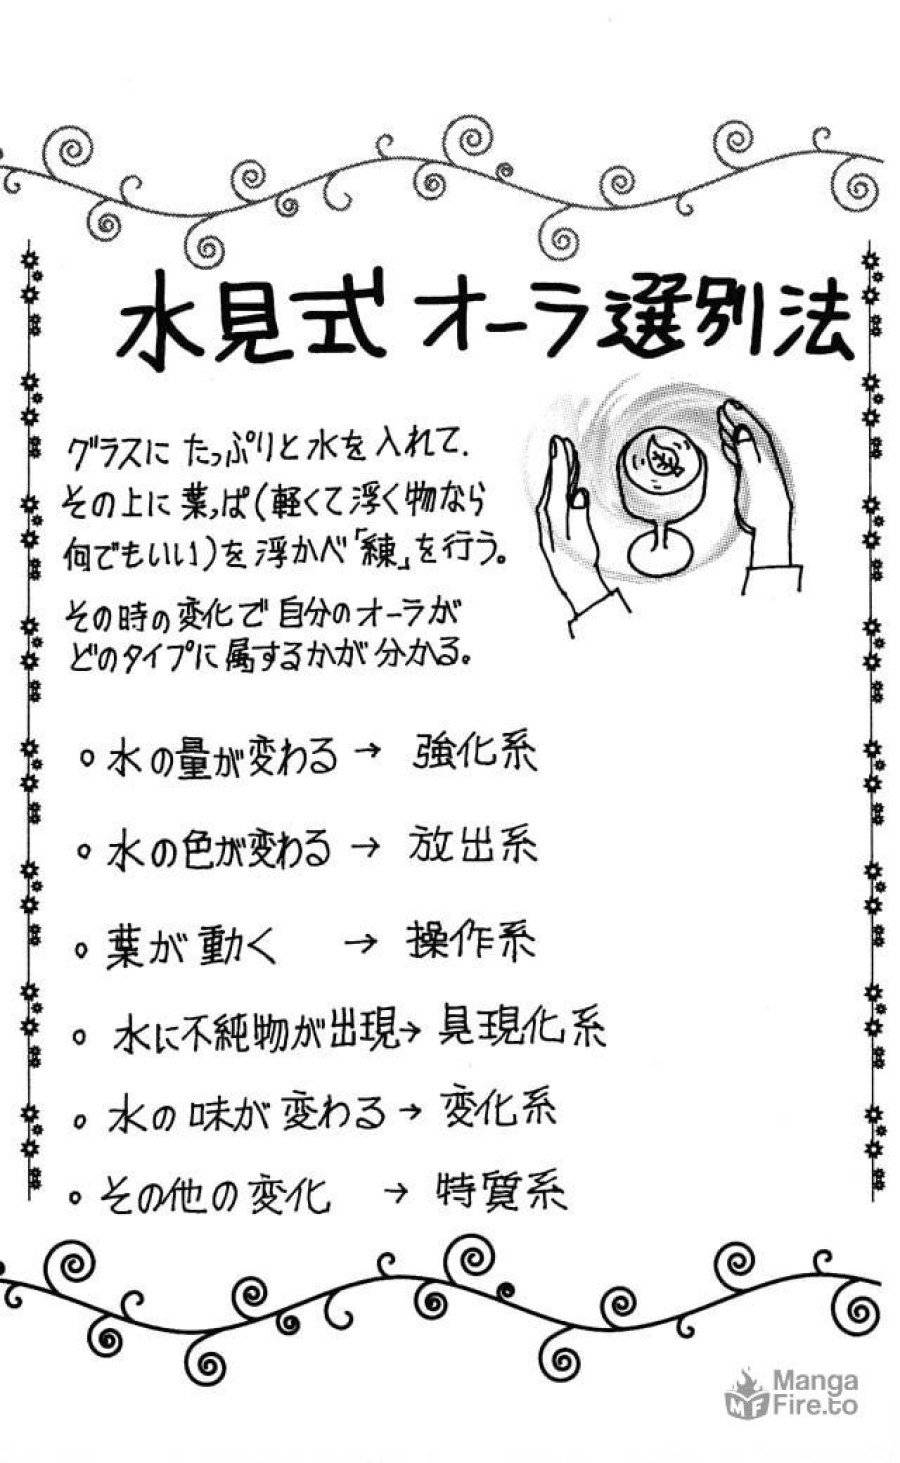 水見式 オーラ選別法
グラスに たっぷりと 水を 入れて.
その上に 葉っぱ(軽くて浮く物なら
何でもいい)を 浮かべ「練」を行う。
その時の変化で 自分のオーラが
どのタイプに属するかが 分かる。
○ 水の量が変わる → 強化系
○ 水の色が変わる → 放出系
○ 葉が動く → 操作系
○ 水に不純物が出現→ 具現化系
○ 水の味が変わる→ 変化系
○ その他の変化 → 特質系
MF
Manga
Fire.to